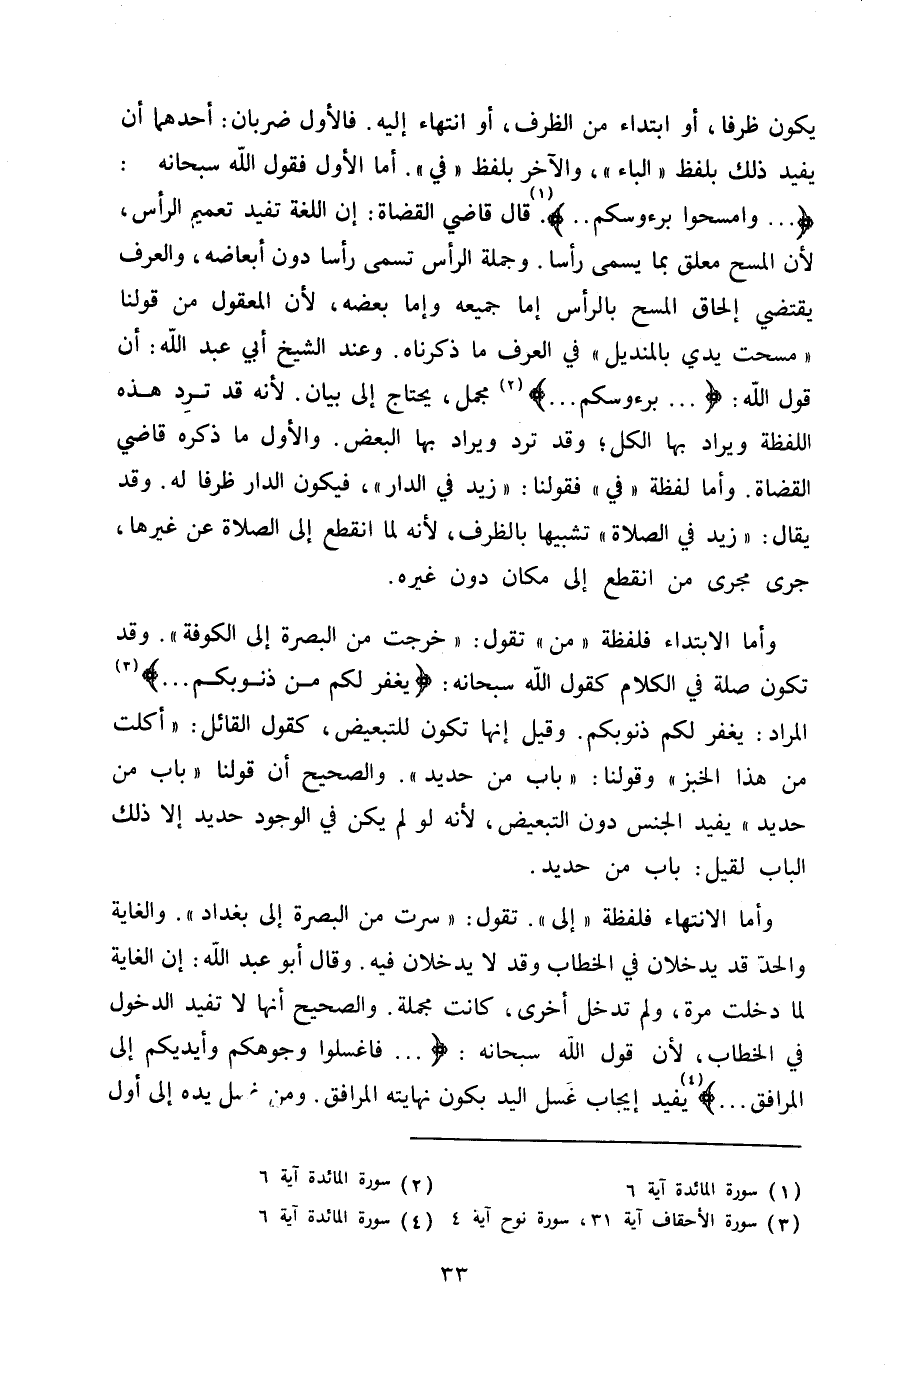 يكون ظرفا، أو ابتداء من الظرف، أو انتهاء إليه. فالأول ضربان: أحدهما أن
يفيد ذلك بلفظ «الباء»، والآخر بلفظ «في». أما الأول فقول الله سبحانه :
﴿... وامسحوا برءوسكم..﴾(١). قال قاضي القضاة: إن اللغة تفيد تعميم الرأس،
لأن المسح معلق بما يسمى رأسا. وجملة الرأس تسمى رأسا دون أبعاضه، والعرف
يقتضي إلحاق المسح بالرأس إما جميعه وإما بعضه، لأن المعقول من قولنا
«مسحت يدي بالمنديل» في العرف ما ذكرناه. وعند الشيخ أبي عبد الله: أن
قول الله: ﴿... برءوسكم...﴾(٢) مجمل، يحتاج إلى بيان. لأنه قد ترد هذه
اللفظة ويراد بها الكل؛ وقد ترد ويراد بها البعض. والأول ما ذكره قاضي
القضاة. وأما لفظة «في» فقولنا: «زيد في الدار»، فيكون الدار ظرفا له. وقد
يقال: «زيد في الصلاة» تشبيها بالظرف، لأنه لما انقطع إلى الصلاة عن غيرها،
جرى مجرى من انقطع إلى مكان دون غيره.
وأما الابتداء فلفظة «من» تقول: «خرجت من البصرة إلى الكوفة». وقد
تكون صلة في الكلام كقول الله سبحانه: ﴿يغفر لكم من ذنوبكم...﴾(٣)
المراد: يغفر لكم ذنوبكم. وقيل إنها تكون للتبعيض، كقول القائل: «أكلت
من هذا الخبز» وقولنا: «باب من حديد». والصحيح أن قولنا «باب من
حديد» يفيد الجنس دون التبعيض، لأنه لو لم يكن في الوجود حديد إلا ذلك
الباب لقيل: باب من حديد.
وأما الانتهاء فلفظة «إلى». تقول: «سرت من البصرة إلى بغداد». والغاية
والحدّ قد يدخلان في الخطاب وقد لا يدخلان فيه. وقال أبو عبد الله: إن الغاية
لما دخلت مرة، ولم تدخل أخرى، كانت مجملة. والصحيح أنها لا تفيد الدخول
في الخطاب، لأن قول الله سبحانه : ﴿... فاغسلوا وجوهكم وأيديكم إلى
المرافق...﴾(٤) يفيد إيجاب غَسل اليد بكون نهايته المرافق. ومن يده إلى أول
(١) سورة المائدة آية ٦ (٢) سورة المائدة آية ٦
(٣) سورة الأحقاف آية ٣١، سورة نوح آية ٤ (٤) سورة المائدة آية ٦
٣٣